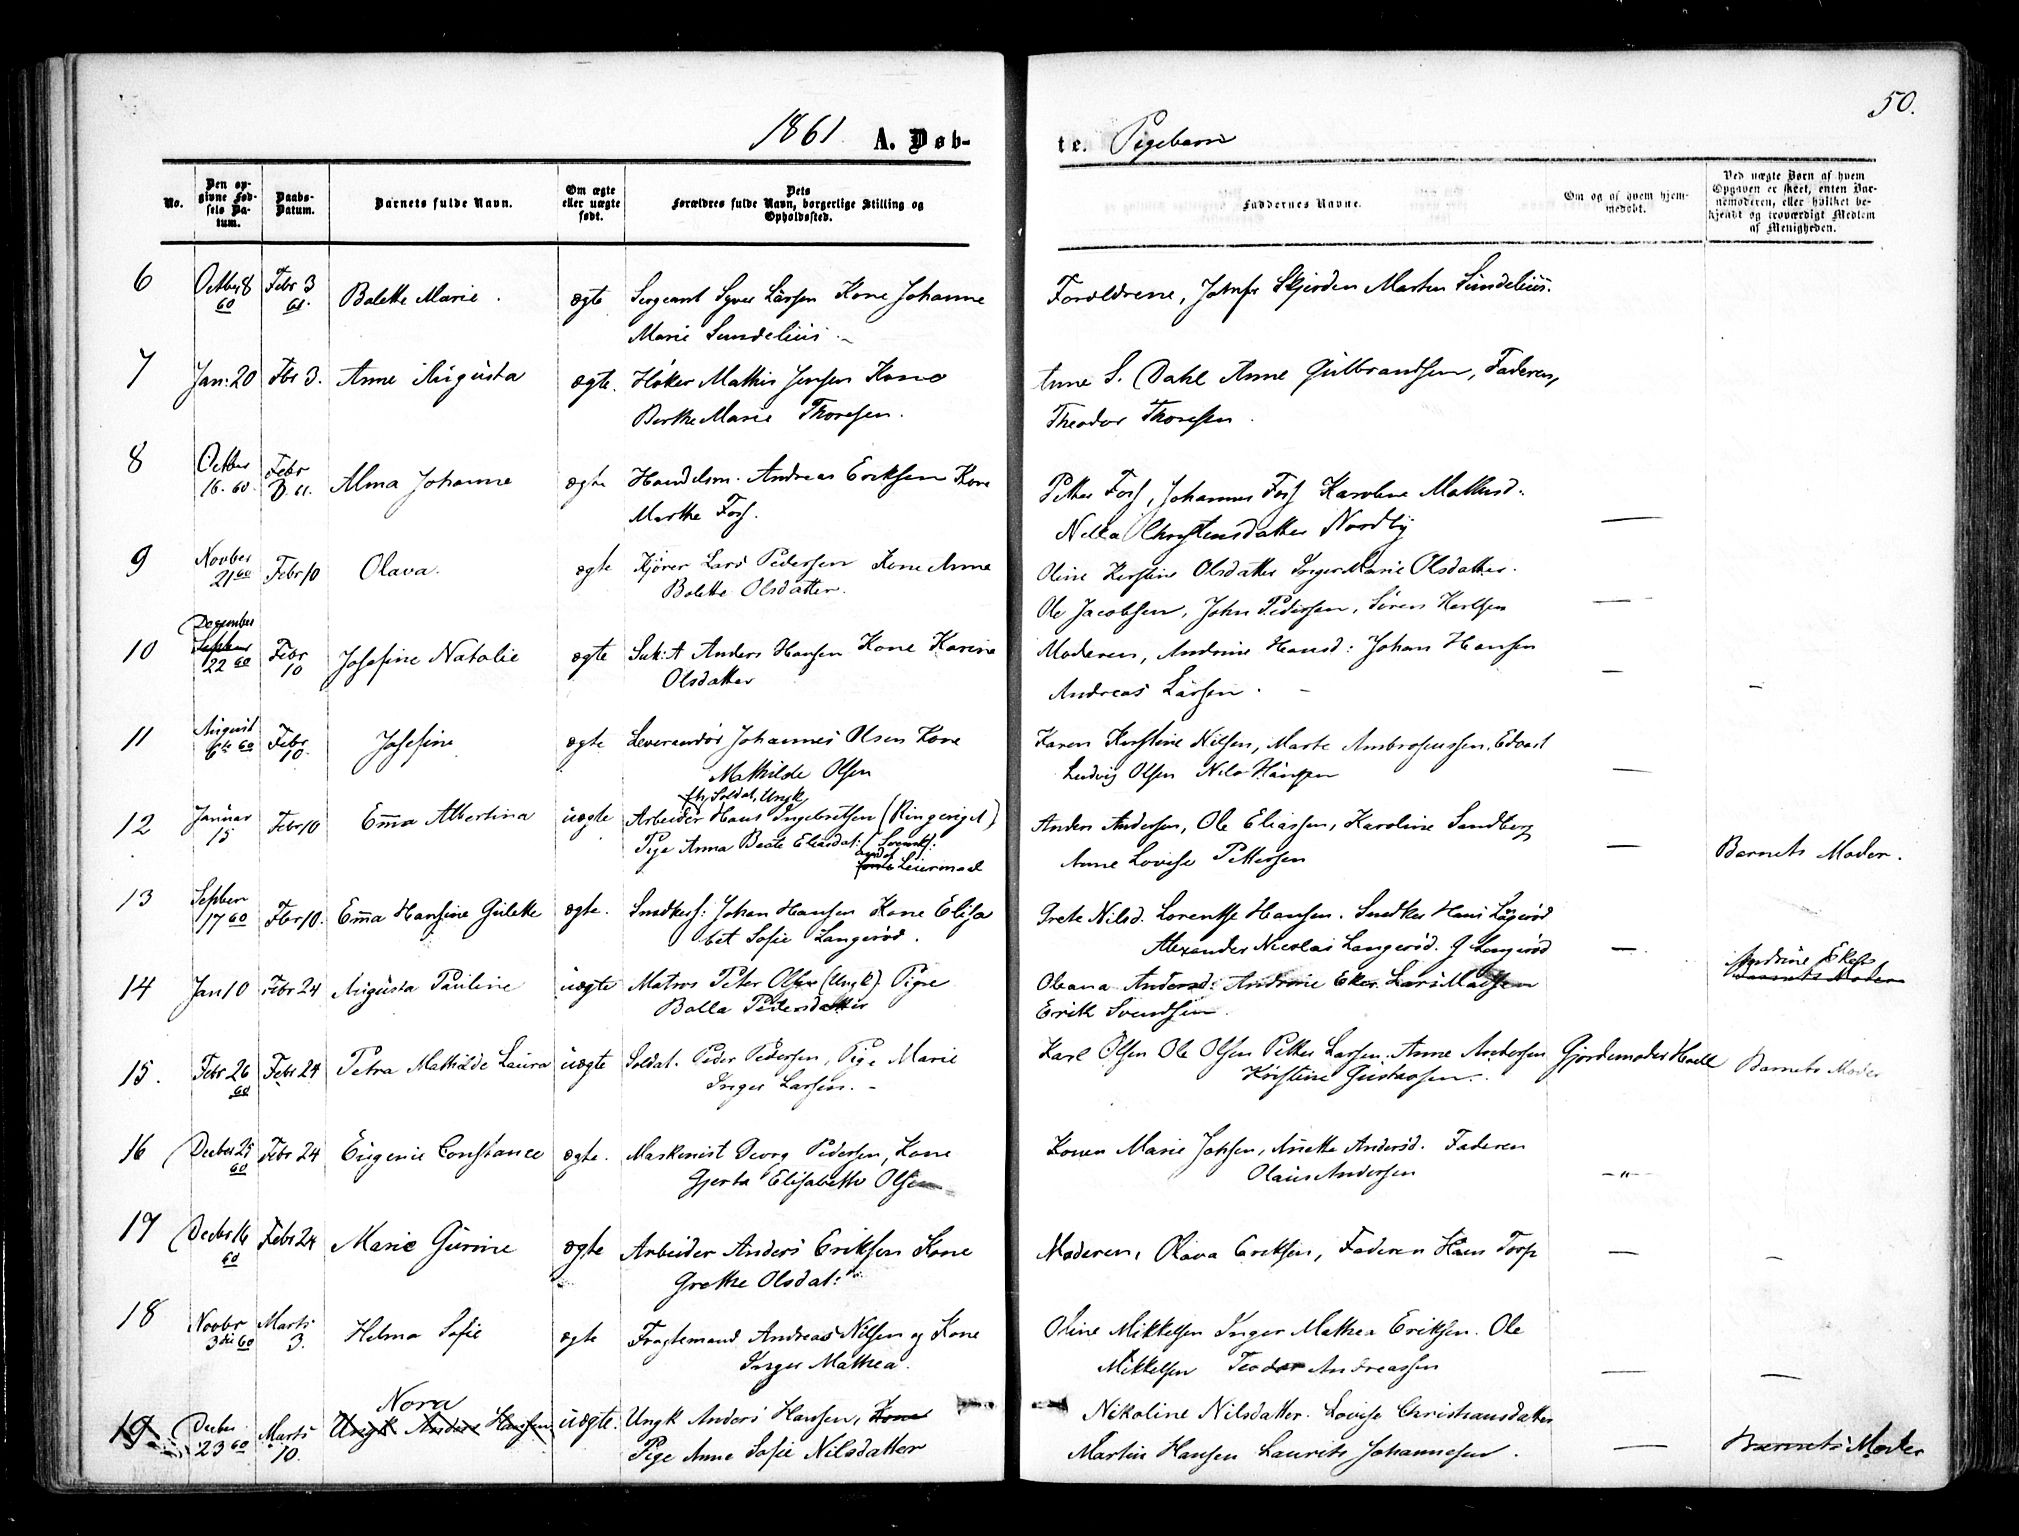 1861. A. Døb-
te. Pigebørn
50.
No.
Den op-
givne Fød-
sels Da-
tum.
Daabs-
Datum.
Barnets fulde Navn.
Om ægte
eller uægte
født.
Dets
Forældres fulde Navn, borgerlige Stilling og
Opholdssted.
Faddernes Navne.
Om og af hvem hjem-
medøbt.
Ved uægte Børn af hvem
Opgaven er skeet, enten Bar-
nemoderen, eller hvilket be-
kjendt og troværdigt Medlem
af Menigheden.
6 Octber 8 Febr 3 Bolette Marie. ægte Sergeant Syver Larsen Kone Johanne
60 61.
Marie Sundelius
Forældrene, Skjorden Morten Sundelius.
7 Jan: 20 Fbr 3. Anne Augusta ægte. Høker Mathis Jensen Kone
Berthe Marie Thoresen.
Anne S. Dahl Anne Gulbrandsen, Faderen,
Theodor Thoresen.
8 Octber Febr Alma Johanne ægte Handelsm. Andreas Eriksen Kone
16. 60. 61.
Marthe Foss.
Petter Foss, Johannes Foss Karoline
Nella Christensdatter Nordby —
9 Novber Febr 10 Olava. ægte Kjører Lars Pedersen Kone Anne
21 60
Bolette Olsdatter.
Oline Kirstine Olsdatter Inger Marie Olsdatter.
Ole Jacobsen, John Pedersen, Søren Karlsen —
10 December
Septber Febr Josefine Natalie ægte Anders Hansen Kone Karine
22 60 10
Olsdatter
Moderen, Andrine Hansd: Johan Hansen
Andreas Larsen. — —
11 August Febr Josefine ægte Leverandør Johannes Olsen Kone
6te 60 10.
Mathilde Olsen
Karen Kirstine Nilsen, Marte Ambrosiussen, Edvart
Ludvig Olsen Nils Hansen —
12 Januar Febr 10 Emma Albertina uægte
15
fh. Soldat, Ungk
Arbeider Hans Ingebretsen (Ringeriget)
Pige Anna Beate Eliasdat: (Svensk:
andet
første Leiermaal
Anders Andersen, Ole Eliassen, Karoline Sandberg
Anne Lovise Pettersen — Barnets Moder.
13 Septber Fbr 10. Emma Hansine Gulette ægte. Snedkers: Johan Hansen Kone Elisa
17 60
bet Sofie Langerød.
Grete Nilsd. Lorentse Hansen. Snedker Hans
Alexander Nicolai Langerød. G Langerød —
14 Jan 10 Febr 24 Augusta Pauline uægte Matros Peter Olsen (Ungk). Pige
Bolla Pedersdatter
Oleana Andersd: Andrine Eker Lars Madsen
Erik Svendsen
Andrine Eker
Barnets Moder
15. Febr 26 Febr 24 Petra Mathilde Laura uægte Soldat. Peder Pedersen, Pige Marie
60
Inger Larsen. –
Karl Olsen Ole Olsen Petter Larsen. Anne Andersen Gjordemoder Barnets Moder
Kirstine Gustavsen.
16 Decber 25 Febr 24 Eugenie Constance ægte. Maskinist Georg Pedersen, Kone
60
Gjerta Elisabeth Olsen
Konen Marie Anette Andersd. Faderen
Olaus Andersen —"—
17 Decbr 16 Febr 24 Marie Gurine ægte Arbeider Anders Eriksen Kone
60
Grethe Olsdat:
Moderen, Olava Eriksen, Faderen Hans Torp — —
18 Novbr Marts Helma Sofie ægte Fragtemand Andreas Nilsen og Kone
3die 60 3.
Inger Mathea.
Oline Mikkelsen Inger Mathea Eriksen. Ole
Mikkelsen Teodor Andreassen — —
Nora
19 Decber Marts Ungk Anders Hansen uægte. Ungk Anders Hansen, Kone
23 60 10.
Pige Anne Sofie Nilsdatter
Nikoline Nilsdatter. Lovise Christiansdatter
Martin Hansen Laurits Johannesen. — Barnets Moder